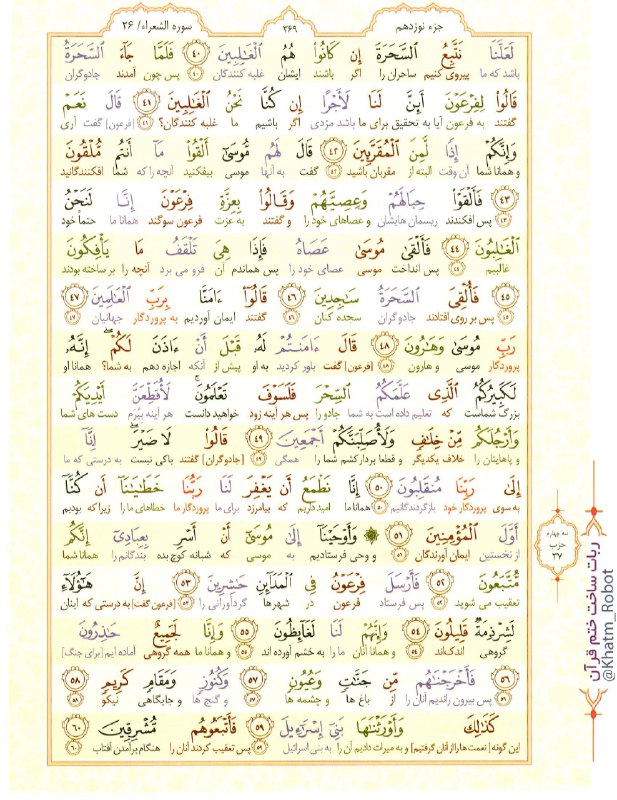 سوره الشعراء/ ۲۶
۳۶۹
جزء نوزدهم
لَعَلَّنَا نَتَّبِعُ ٱلسَّحَرَةَ إِن كَانُوا۟ هُمُ ٱلْغَٰلِبِينَ ﴿٤٠﴾ فَلَمَّا جَآءَ ٱلسَّحَرَةُ
باشد که ما پیروی کنیم ساحران را اگر باشند ایشان غلبه کنندگان ۴۰ پس چون آمدند جادوگران
قَالُوا۟ لِفِرْعَوْنَ أَئِنَّ لَنَا لَأَجْرًا إِن كُنَّا نَحْنُ ٱلْغَٰلِبِينَ ﴿٤١﴾ قَالَ نَعَمْ
گفتند به فرعون آیا به تحقیق برای ما باشد مزدی اگر باشیم ما غلبه کنندگان؟ ۴۱ [فرعون] گفت آری
وَإِنَّكُمْ إِذًا لَّمِنَ ٱلْمُقَرَّبِينَ ﴿٤٢﴾ قَالَ لَهُم مُّوسَىٰٓ أَلْقُوا۟ مَآ أَنتُم مُّلْقُونَ
و همانا شما آن وقت البته از مقربان باشید ۴۲ گفت به آنها موسی بیفکنید آنچه را که شما افکنندگانید
﴿٤٣﴾ فَأَلْقَوْا۟ حِبَالَهُمْ وَعِصِيَّهُمْ وَقَالُوا۟ بِعِزَّةِ فِرْعَوْنَ إِنَّا لَنَحْنُ
۴۳ پس افکندند ریسمان هایشان و عصاهای خود را و گفتند به عزت فرعون سوگند همانا ما حتماً خود
ٱلْغَٰلِبُونَ ﴿٤٤﴾ فَأَلْقَىٰ مُوسَىٰ عَصَاهُ فَإِذَا هِىَ تَلْقَفُ مَا يَأْفِكُونَ
غالبیم ۴۴ پس انداخت موسی عصای خود را پس هماندم آن فرو می برد آنچه را بر ساخته بودند
﴿٤٥﴾ فَأُلْقِىَ ٱلسَّحَرَةُ سَٰجِدِينَ ﴿٤٦﴾ قَالُوٓا۟ ءَامَنَّا بِرَبِّ ٱلْعَٰلَمِينَ ﴿٤٧﴾
۴۵ پس بر روی افتادند جادوگران سجده کنان ۴۶ گفتند ایمان آوردیم به پروردگار جهانیان ۴۷
رَبِّ مُوسَىٰ وَهَٰرُونَ ﴿٤٨﴾ قَالَ ءَامَنتُمْ لَهُۥ قَبْلَ أَنْ ءَاذَنَ لَكُمْ ۖ إِنَّهُۥ
پروردگار موسی و هارون ۴۸ [فرعون] گفت باور کردید به او پیش از آنکه اجازه دهم به شما؟ همانا او
لَكَبِيرُكُمُ ٱلَّذِى عَلَّمَكُمُ ٱلسِّحْرَ فَلَسَوْفَ تَعْلَمُونَ ۚ لَأُقَطِّعَنَّ أَيْدِيَكُمْ
بزرگ شماست که تعلیم داده است به شما جادو را پس هر آینه زود خواهید دانست هر آینه ببُرم دست های شما
وَأَرْجُلَكُم مِّنْ خِلَٰفٍ وَلَأُصَلِّبَنَّكُمْ أَجْمَعِينَ ﴿٤٩﴾ قَالُوا۟ لَا ضَيْرَ ۖ إِنَّآ
و پاهایتان را خلاف یکدیگر و قطعا بردار کشم شما را همگی ۴۹ [جادوگران] گفتند باکی نیست به درستی که ما
إِلَىٰ رَبِّنَا مُنقَلِبُونَ ﴿٥٠﴾ إِنَّا نَطْمَعُ أَن يَغْفِرَ لَنَا رَبُّنَا خَطَٰيَٰنَآ أَن كُنَّآ
به سوی پروردگار خود بازگردندگانیم ۵۰ همانا ما امید داریم که بیامرزد برای ما پروردگار ما خطاهای ما را زیرا که بودیم
أَوَّلَ ٱلْمُؤْمِنِينَ ﴿٥١﴾ ۞ وَأَوْحَيْنَآ إِلَىٰ مُوسَىٰٓ أَنْ أَسْرِ بِعِبَادِىٓ إِنَّكُم
از نخستین ایمان آورندگان ۵۱ و وحی فرستادیم به موسی که شبانه کوچ بده بندگانم را همانا شما
مُّتَّبَعُونَ ﴿٥٢﴾ فَأَرْسَلَ فِرْعَوْنُ فِى ٱلْمَدَآئِنِ حَٰشِرِينَ ﴿٥٣﴾ إِنَّ هَٰٓؤُلَآءِ
تعقیب می شوید ۵۲ پس فرستاد فرعون در شهرها گردآورانی را ۵۳ [فرعون گفت] به درستی که اینان
لَشِرْذِمَةٌ قَلِيلُونَ ﴿٥٤﴾ وَإِنَّهُمْ لَنَا لَغَآئِظُونَ ﴿٥٥﴾ وَإِنَّا لَجَمِيعٌ حَٰذِرُونَ
گروهی اندک‌اند ۵۴ و همانا آنان ما را به خشم آورده اند ۵۵ و همانا ما همه گروهی آماده ایم [برای جنگ]
﴿٥٦﴾ فَأَخْرَجْنَٰهُم مِّن جَنَّٰتٍ وَعُيُونٍ ﴿٥٧﴾ وَكُنُوزٍ وَمَقَامٍ كَرِيمٍ ﴿٥٨﴾
۵۶ پس بیرون راندیم آنان را از باغ ها و چشمه ها ۵۷ و گنج ها و جایگاهی نیکو ۵۸
كَذَٰلِكَ وَأَوْرَثْنَٰهَا بَنِىٓ إِسْرَٰٓءِيلَ ﴿٥٩﴾ فَأَتْبَعُوهُم مُّشْرِقِينَ ﴿٦٠﴾
این گونه [نعمت ها را از آنان گرفتیم] و به میراث دادیم آن را به بنی اسرائیل ۵۹ پس تعقیب کردند آنان را هنگام برآمدن آفتاب ۶۰
سه چهارم
حزب
۳۷
ربات ساخت ختم قرآن
@Khatm_Robot